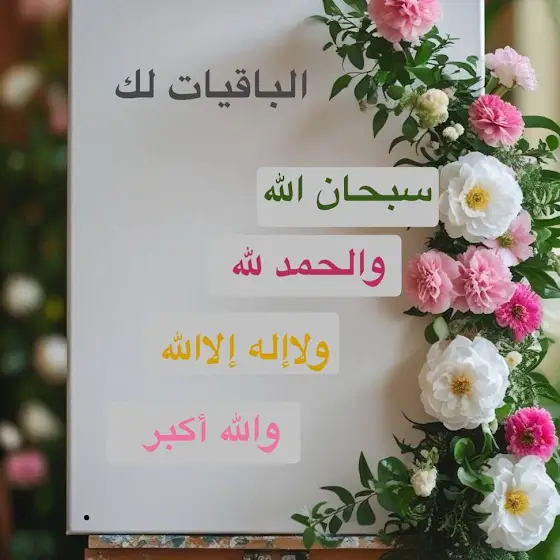 الباقيات لك
سبحان الله
والحمد لله
ولاإله إلاالله
والله أكبر